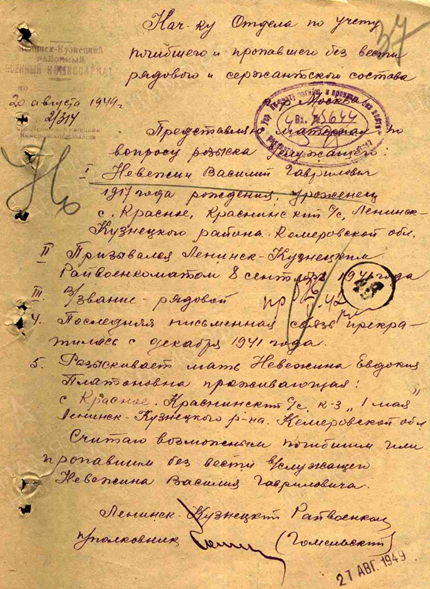 Нач-ку Отдела по учету
погибшего и пропавшего без вести
рядового и сержантского состава
37
Ленинск-Кузнецкий
РАЙОННЫЙ
ВОЕННЫЙ КОМИССАРИАТ
г. Москва
20 августа 1949 г.
2/314
Вх. № 5644
Представляю материал по
вопросу розыска в/служащего:
I Невежин Василий Гаврилович
1917 года рождения, уроженец
с. Красное, Краснинский с/с, Ленинск-
Кузнецкого района Кемеровской обл.
II Призывался Ленинск-Кузнецким
Райвоенкоматом 8 сентября 1941 года
III В/звание - рядовой
пр
42
4. Последняя письменная связь прекра-
тилась с декабря 1941 года.
5. Разыскивает мать Невежина Евдокия
Платоновна проживающая:
с Красное. Краснинский с/с, к-з „1 мая"
Ленинск-Кузнецкого р-на. Кемеровской обл
Считаю возможным погибшим или
пропавшим без вести в/служащего
Невежина Василия Гавриловича.
Ленинск-Кузнецкий Райвоенком
п/полковник (Гомельский)
27 АВГ. 1949